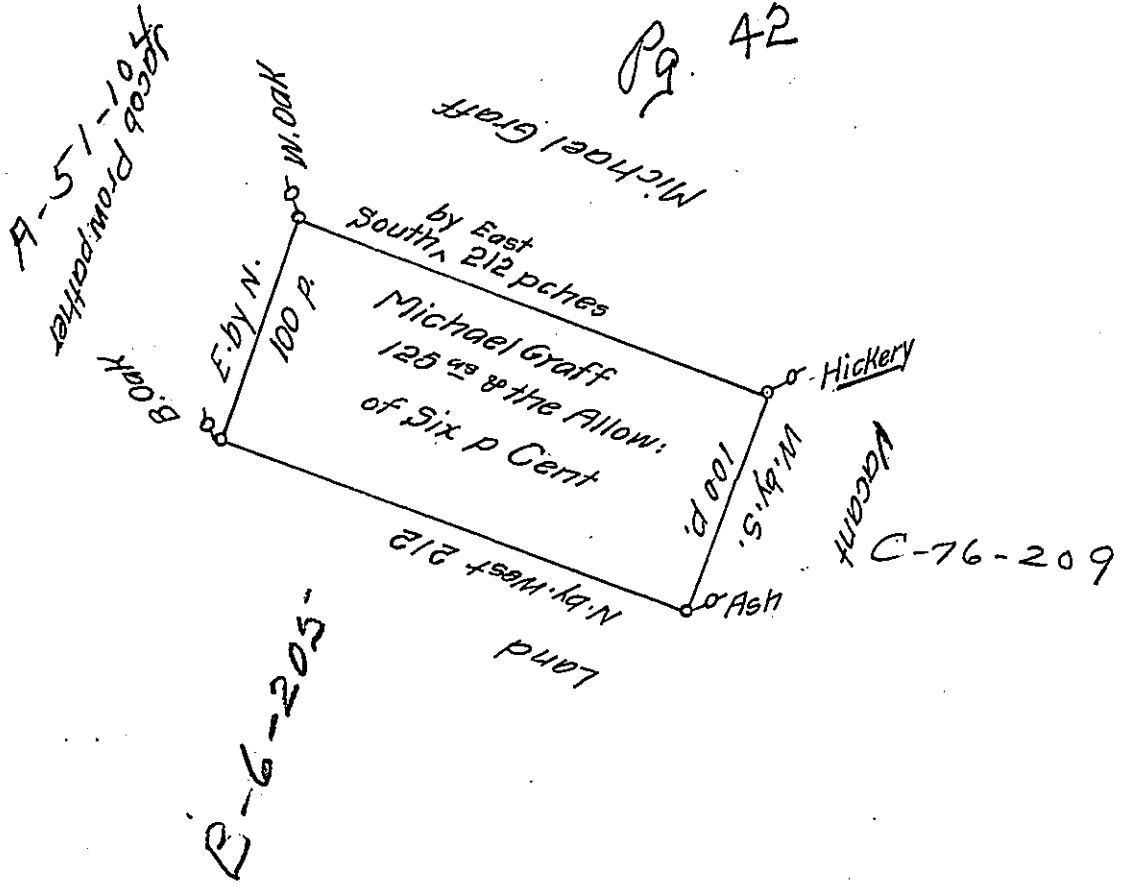 Pg. 42
A-51-104
Jacob Prowpather
W.Oak
Michael Graff
by East
South ^ 212 pches
E.by N.
100 p.
Michael Graff
125 as & the Allow:
of Six p Cent
Hickery
B.Oak
W.by.S.
100 p.
Vacant
C-76-209
N.by.West 212
Ash
Land
-6-205-